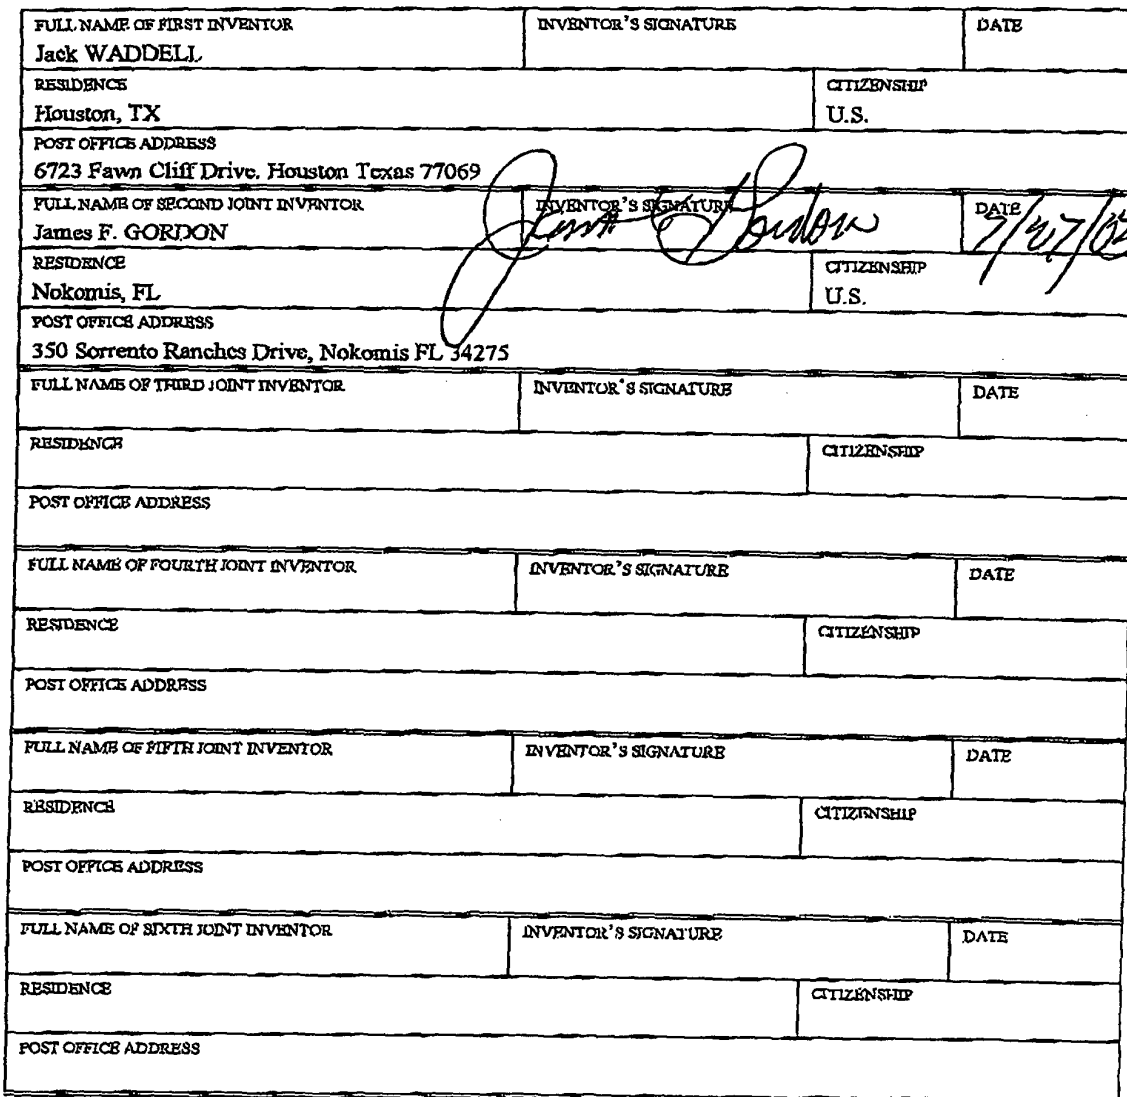 FULL NAME OF FIRST INVENTOR INVENTOR'S SIGNATURE DATE
Jack WADDELL
RESIDENCE CITIZENSHIP
Houston, TX U.S.
POST OFFICE ADDRESS
6723 Fawn Cliff Drive. Houston Texas 77069
FULL NAME OF SECOND JOINT INVENTOR INVENTOR'S SIGNATURE DATE
James F. GORDON James F Gordon
RESIDENCE CITIZENSHIP
Nokomis, FL U.S.
POST OFFICE ADDRESS
350 Sorrento Ranches Drive, Nokomis FL 34275
FULL NAME OF THIRD JOINT INVENTOR INVENTOR'S SIGNATURE DATE
RESIDENCE CITIZENSHIP
POST OFFICE ADDRESS
FULL NAME OF FOURTH JOINT INVENTOR INVENTOR'S SIGNATURE DATE
RESIDENCE CITIZENSHIP
POST OFFICE ADDRESS
FULL NAME OF FIFTH JOINT INVENTOR INVENTOR'S SIGNATURE DATE
RESIDENCE CITIZENSHIP
POST OFFICE ADDRESS
FULL NAME OF SIXTH JOINT INVENTOR INVENTOR'S SIGNATURE DATE
RESIDENCE CITIZENSHIP
POST OFFICE ADDRESS